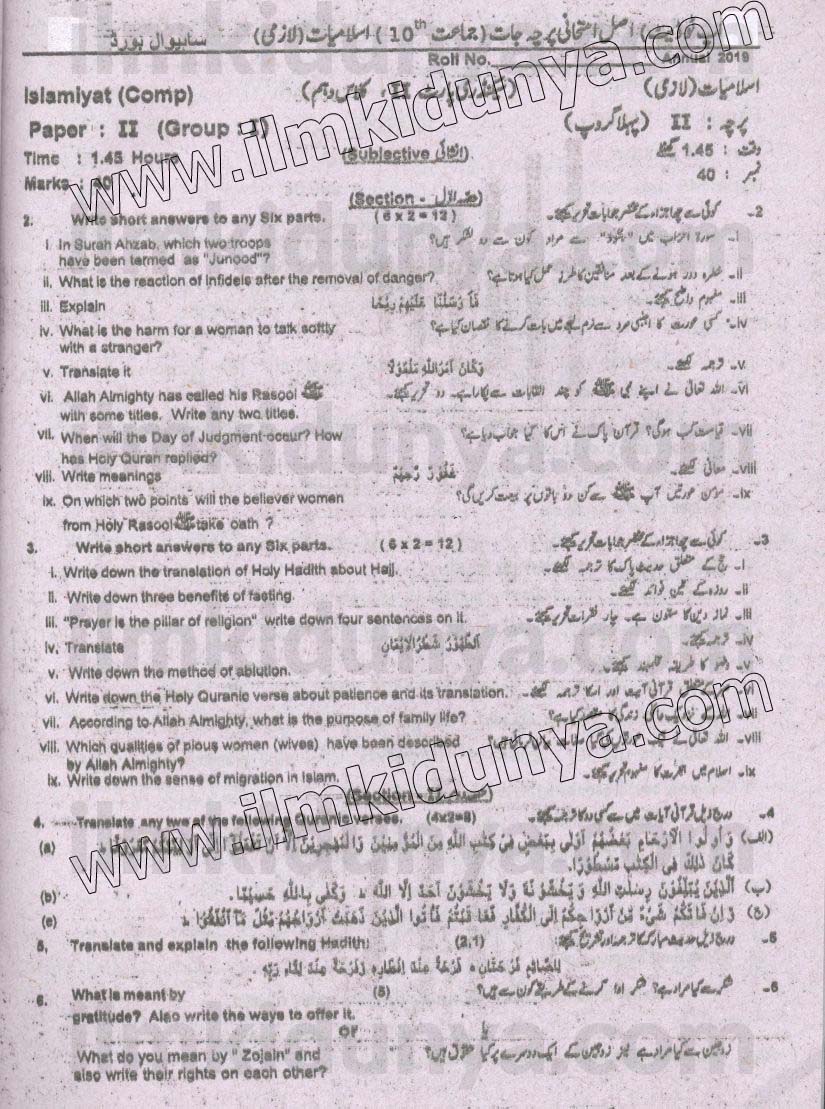 اصل امتحانی پرچہ جات (جماعت 10th) اسلامیات (لازمی) ساہیوال بورڈ
Roll No. Annual 2019
Islamiyat (Comp) اسلامیات (لازمی)
Paper : II (Group : I) پرچہ : II (پہلا گروپ)
Time : 1.45 Hours (Subjective انشائی) وقت : 1.45 گھنٹے
Marks : 40 نمبر : 40
(Section - حصہ اول)
2. Write short answers to any Six parts. (6 x 2 = 12) 2- کوئی سے چھ اجزاء کے مختصر جوابات تحریر کیجئے۔
i. In Surah Ahzab, which two troops have been termed as "Junood"? i۔ سورۃ احزاب میں "جنود" سے مراد کون سے دو لشکر ہیں؟
ii. What is the reaction of infidels after the removal of danger? ii۔ خطرہ دور ہونے کے بعد منافقین کا طرز عمل کیا ہوتا ہے؟
iii. Explain iii۔ مفہوم واضح کیجئے۔
iv. What is the harm for a woman to talk softly with a stranger? iv۔ کسی عورت کا اجنبی مرد سے نرم لہجے میں بات کرنے کا نقصان کیا ہے؟
v. Translate it وَكَانَ اَمْرُ اللهِ مَفْعُوْلًا v۔ ترجمہ کیجئے۔
vi. Allah Almighty has called his Rasool ﷺ with some titles. Write any two titles. vi۔ اللہ تعالیٰ نے اپنے نبی ﷺ کو چند القابات سے پکارا ہے۔ دو تحریر کیجئے۔
vii. When will the Day of Judgment occur? How has Holy Quran replied? vii۔ قیامت کب ہوگی؟ قرآن پاک نے اس کا کیا جواب دیا ہے؟
viii. Write meanings غَفُوْرٌ رَّحِيْمٌ viii۔ معانی لکھئے۔
ix. On which two points will the believer women from Holy Rasool ﷺ take oath ? ix۔ مؤمن عورتیں آپ ﷺ سے کن دو باتوں پر بیعت کریں گی؟
3. Write short answers to any Six parts. (6 x 2 = 12) 3- کوئی سے چھ اجزاء کے مختصر جوابات تحریر کیجئے۔
i. Write down the translation of Holy Hadith about Hajj. i۔ حج کے متعلق حدیث پاک کا ترجمہ لکھئے۔
ii. Write down three benefits of fasting. ii۔ روزہ کے تین فوائد لکھئے۔
iii. "Prayer is the pillar of religion" write down four sentences on it. iii۔ نماز دین کا ستون ہے۔ چار فقرات تحریر کیجئے۔
iv. Translate اَلطُّهُوْرُ شَطْرُ الْاِيْمَانِ iv۔ ترجمہ کیجئے۔
v. Write down the method of ablution. v۔ وضو کا طریقہ قلمبند کیجئے۔
vi. Write down the Holy Quranic verse about patience and its translation. متعلق قرآنی آیت اور اسکا ترجمہ لکھئے۔
vii. According to Allah Almighty, what is the purpose of family life? vii۔
viii. Which qualities of pious women (wives) have been described by Allah Almighty? viii۔ اللہ تعالیٰ نے
ix. Write down the sense of migration in Islam. ix۔ اسلام میں ہجرت کا مفہوم تحریر کیجئے۔
(Section - II
4. Translate any two of the following Quranic verses. (4x2=8) 4- درج ذیل قرآنی آیات میں سے کسی دو کا ترجمہ کیجئے۔
(a) (الف) وَاُولُوا الْاَرْحَامِ بَعْضُهُمْ اَوْلٰى بِبَعْضٍ فِيْ كِتٰبِ اللهِ مِنَ الْمُؤْمِنِيْنَ وَالْمُهٰجِرِيْنَ
كَانَ ذٰلِكَ فِي الْكِتٰبِ مَسْطُوْرًا۔
(b) (ب) الَّذِيْنَ يُبَلِّغُوْنَ رِسٰلٰتِ اللهِ وَيَخْشَوْنَهٗ وَلَا يَخْشَوْنَ اَحَدًا اِلَّا اللهَ ط وَكَفٰى بِاللهِ حَسِيْبًا۔
(c) (ج) وَاِنْ فَاتَكُمْ شَيْءٌ مِّنْ اَزْوَاجِكُمْ اِلَى الْكُفَّارِ فَعَاقَبْتُمْ فَاٰتُوا الَّذِيْنَ ذَهَبَتْ اَزْوَاجُهُمْ مِّثْلَ مَآ اَنْفَقُوْا ط
5. Translate and explain the following Hadith: (2,1) 5- درج ذیل حدیث مبارکہ کا ترجمہ اور تشریح کیجئے:
لِلصَّائِمِ فَرْحَتَانِ ، فَرْحَةٌ عِنْدَ اِفْطَارِهٖ وَفَرْحَةٌ عِنْدَ لِقَاءِ رَبِّهٖ۔
6. What is meant by (5) gratitude? Also write the ways to offer it. 6- شکر سے کیا مراد ہے؟ شکر ادا کرنے کے طریقے کون سے ہیں؟
Or یا
What do you mean by " Zojain" and also write their rights on each other? زوجین سے کیا مراد ہے نیز زوجین کے ایک دوسرے پر کیا حقوق ہیں؟
www.ilmkidunya.com
www.ilmkidunya.com
ilmkidunya.com